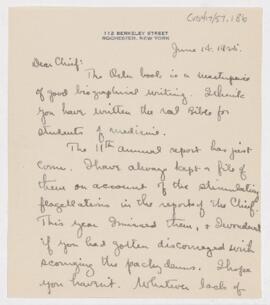 112 BERKELEY STREET
ROCHESTER, NEW YORK
June 14. 1925.
Dear Chief:
The Osler book is a masterpiece
of good biographical writing. I think
you have written the real Bible for
students of medicine.
The 11th annual report has just
come. I have always kept a file of
them on account of the stimulating
flagellations in the report of the Chief.
This year I missed them, & I wondered
if you had gotten discouraged with
scourging the pachyderms. I hope
you haven't. Whatever lack of